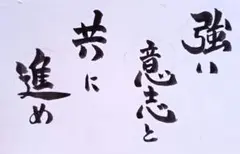 強い
意志と
共に
進め